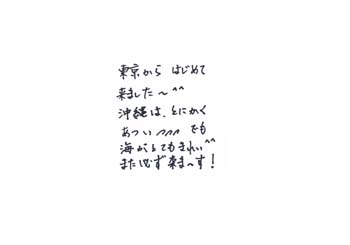 東京から はじめて
来ました〜^^
沖縄は、とにかく
あつい^^^ でも
海がとてもきれい^^
また必ず来ま〜す!